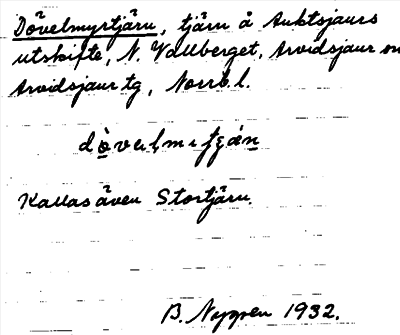 Dövelmyrtjärn, tjärn å Auktsjaurs
utskifte, N. Vallberget, Arvidsjaur sn
Arvidsjaur tg, Norrb. l.
Kallas även Stortjärn.
B. Nygren 1932.